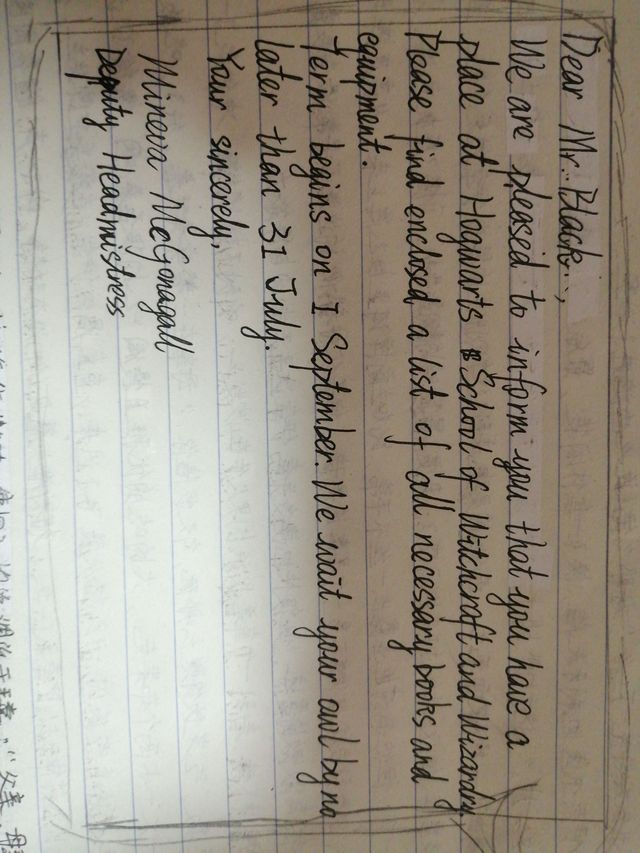 Dear Mr. Black...,
We are pleased to inform you that you have a
place at Hogwarts School of Witchcraft and Wizardry.
Please find enclosed a list of all necessary books and
equipment.
Term begins on 1 September. We wait your owl by no
later than 31 July.
Your sincerely,
Mineva McGonagall
Deputy Headmistress